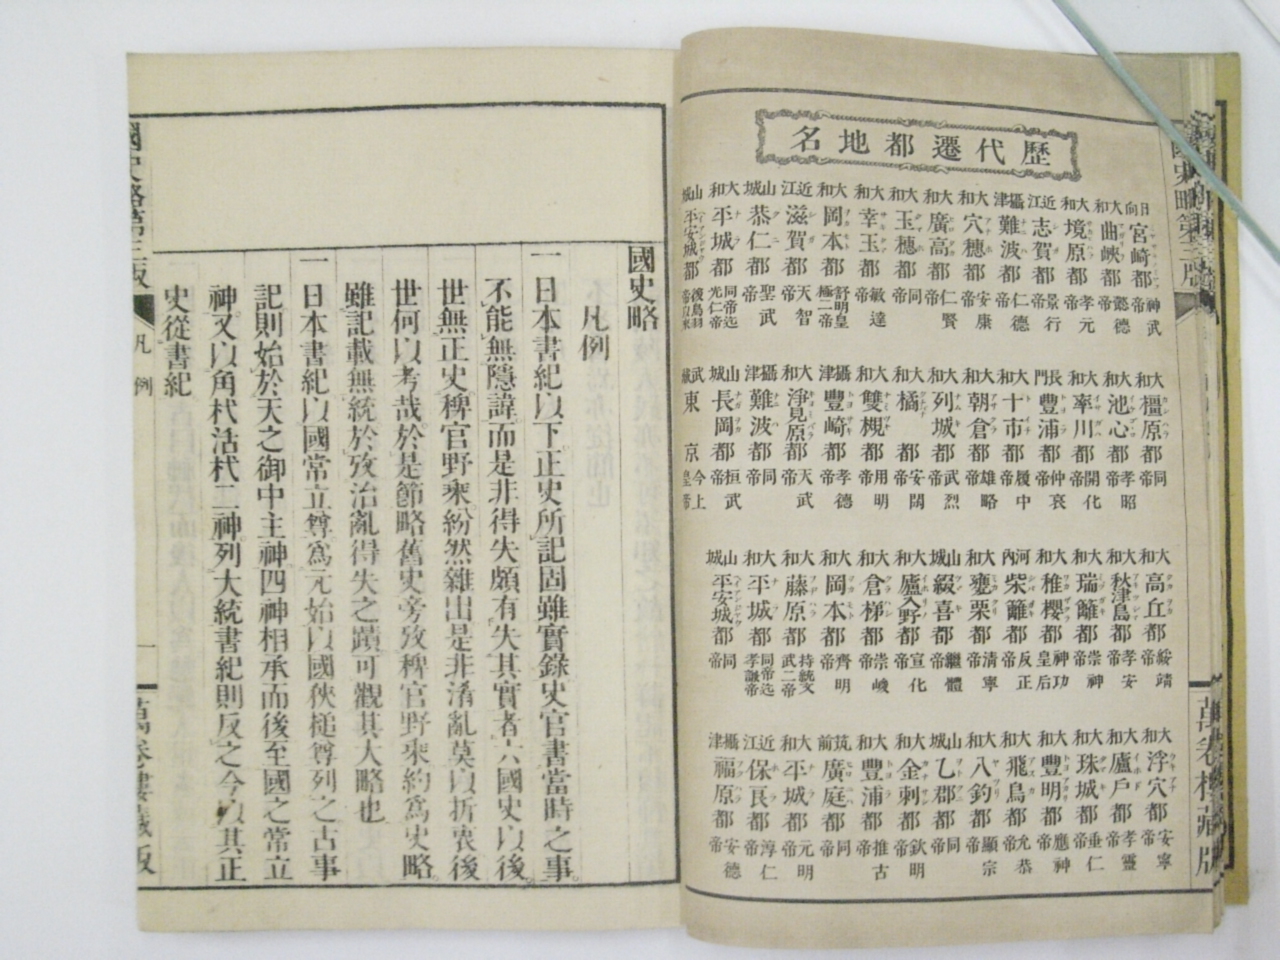 歷代遷都地名
日向 宮崎都 神武帝
大和 曲峽都 懿德帝
大和 境原都 孝元帝
近江 志賀都 景行帝
攝津 難波都 仁德帝
大和 穴穗都 安康帝
大和 廣高都 仁賢帝
大和 玉穗都 同帝
大和 幸玉都 敏達帝
大和 岡本都 舒明皇極二帝
近江 滋賀都 天智帝
山城 恭仁都 聖武帝
大和 平城都 同帝迄光仁帝
山城 平安城都
大和 橿原都 同帝
大和 池心都 孝昭帝
大和 率川都 開化帝
長門 豐浦都 仲哀帝
大和 十市都 履中帝
大和 朝倉都 雄略帝
大和 列城都 武烈帝
大和 橘都 安閑帝
大和 雙槻都 用明帝
攝津 豐崎都 孝德帝
大和 淨見原都 天武帝
攝津 難波都 同帝
山城 長岡都 桓武帝
武藏 東京 今上皇帝
大和 高丘都 綏靖帝
大和 秋津島都 孝安帝
大和 瑞籬都 崇神帝
大和 稚櫻都 神功皇后
河內 柴籬都 反正帝
大和 甕栗都 清寧帝
山城 綴喜都 繼體帝
大和 廬入野都 宣化帝
大和 倉梯都 崇峻帝
大和 岡本都 齊明帝
大和 藤原都 持統文武二帝
大和 平城都 同帝迄孝謙帝
山城 平安城都 同帝
大和 浮穴都 安寧帝
大和 廬戶都 孝靈帝
大和 珠城都 垂仁帝
大和 豐明都 應神帝
大和 飛鳥都 允恭帝
大和 八釣都 顯宗帝
山城 乙郡都 同帝
大和 金刺都 欽明帝
大和 豐浦都 推古帝
筑前 廣庭都 同帝
大和 平城都 元明帝
近江 保良都 淳仁帝
攝津 福原都 安德帝
國史略
凡例
一日本書紀以下正史所記固雖實錄史官書當時之事
不能無隱諱而是非得失頗有失其實者六國史以後
世無正史稗官野乘紛然雜出是非淆亂莫以折衷後
世何以考哉於是節略舊史旁攷稗官野乘約爲史略
雖記載無統於攷治亂得失之蹟可觀其大略也
一日本書紀以國常立尊爲元始以國狹槌尊列之古事
記則始於天之御中主神四神相承而後至國之常立
神又以角杙活杙二神列大統書紀則反之今以其正
史從書紀
國史略第三版
凡例
一
萬卷樓藏版